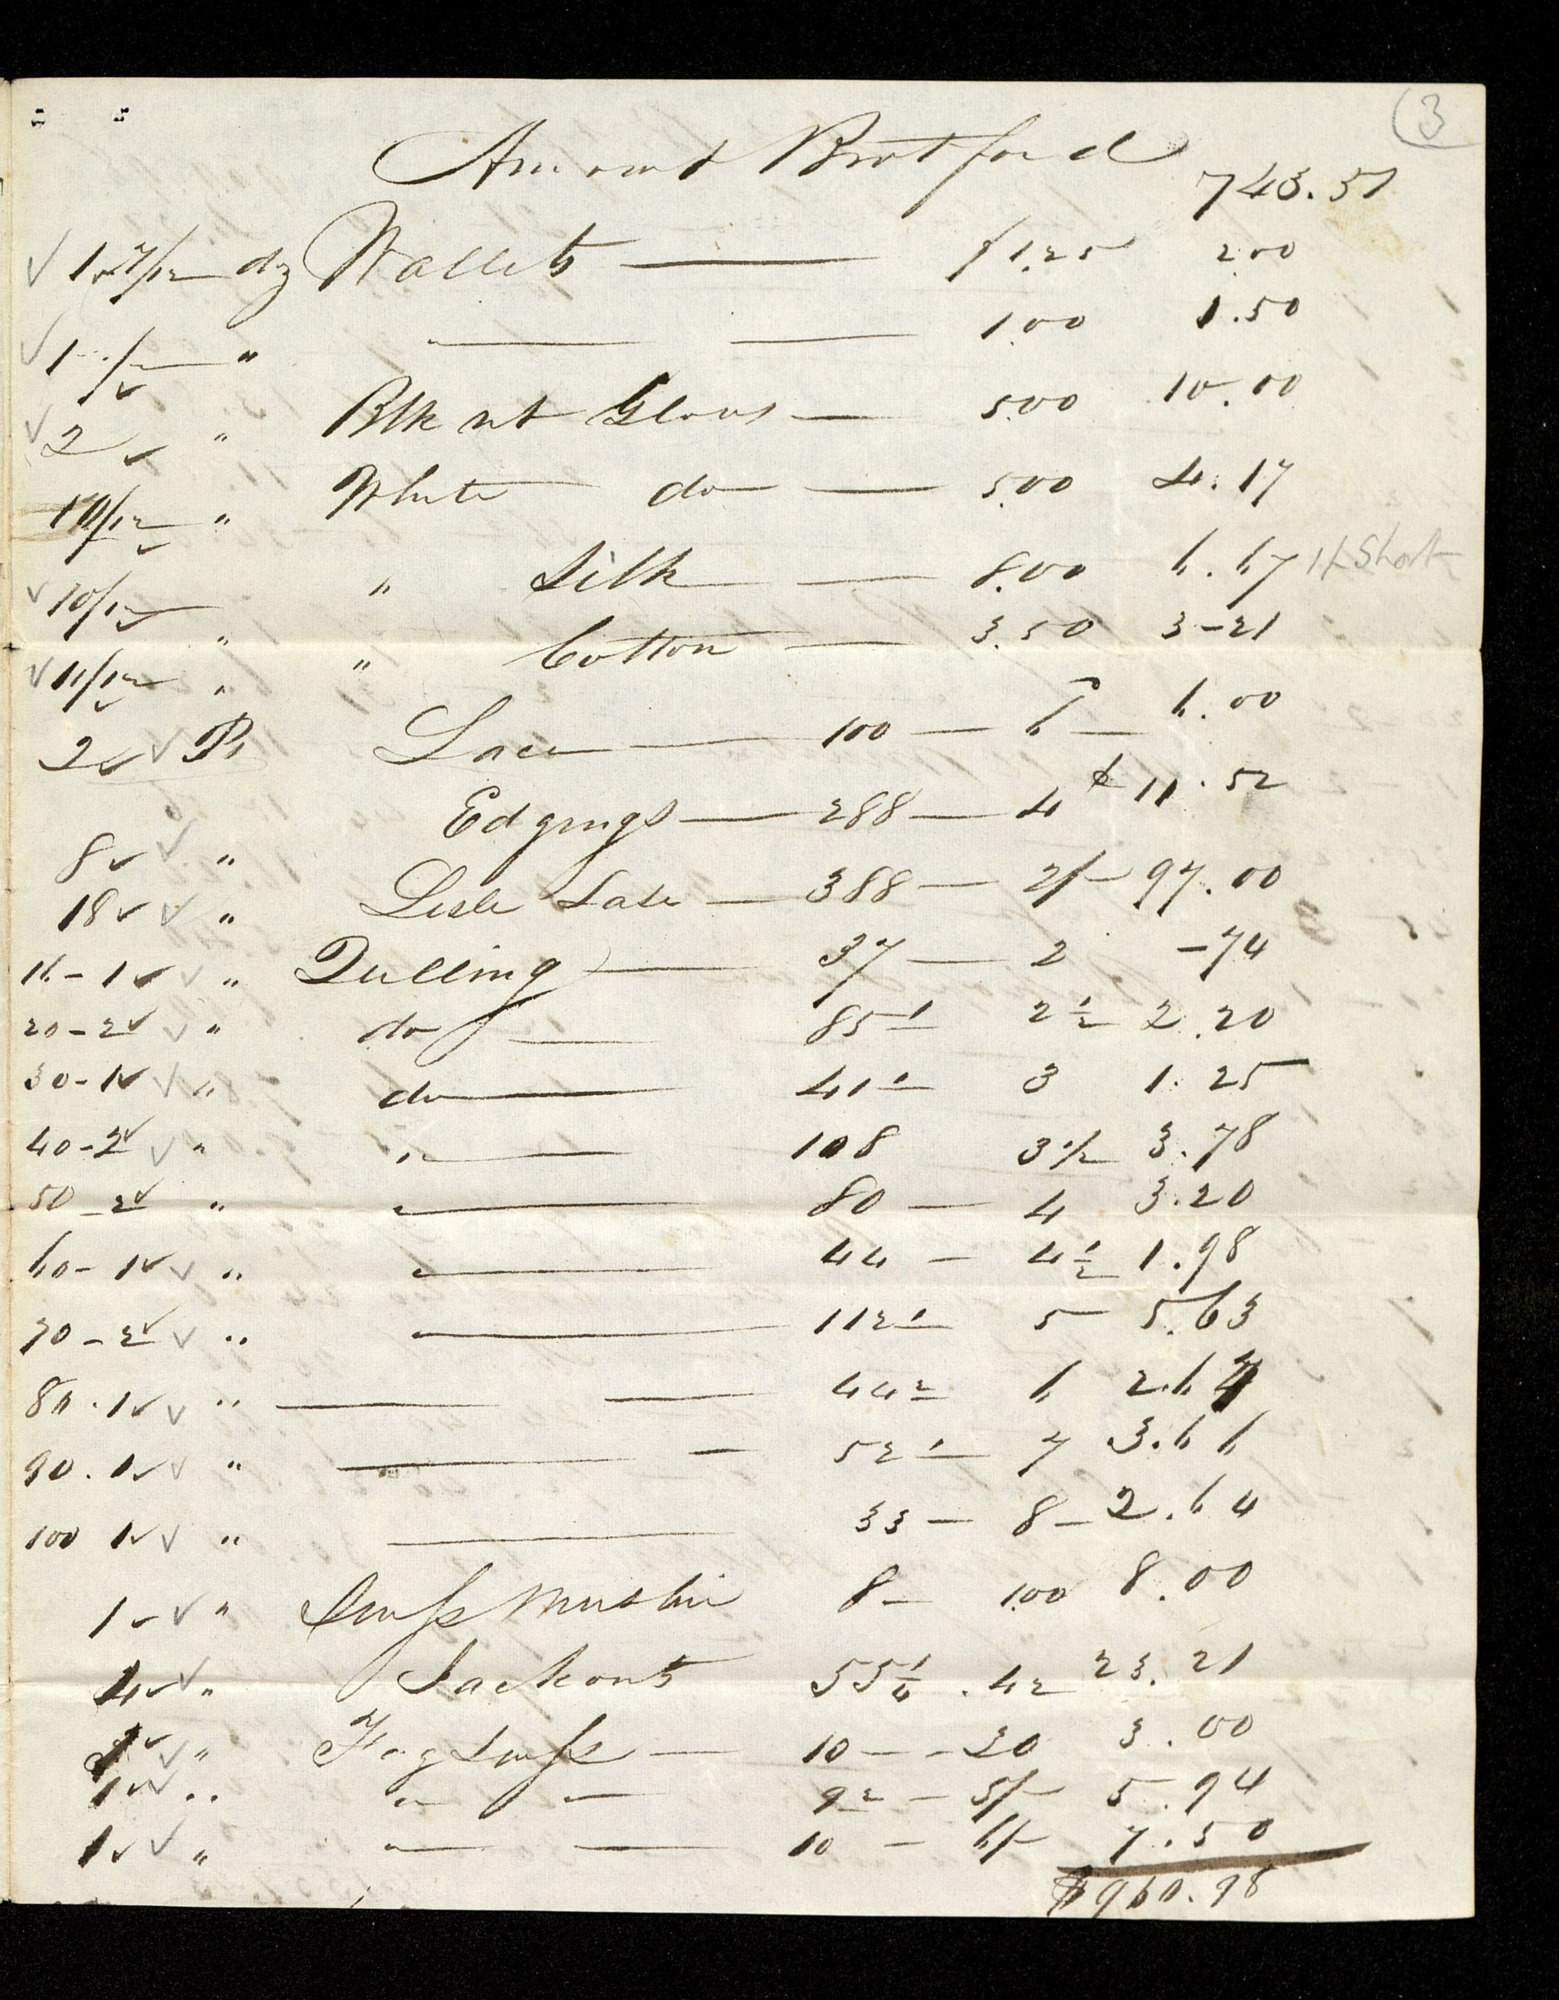 (3
Amount Brot ford 743.51
1 7/12 dz Wallets — $1.25 2.00
1 /2 " — — 1.00 1.50
2 " Blk nt Gloves — 5.00 10.00
10/12 " White do — 5.00 4.17
10/12 " " Silk — 8.00 6.67 1/ Short
11/12 " " Cotton — 3.50 3-21
2 Ps Lace — 100 — 6 — 6.00
8 " Edgings — 288 — 4 ¢ 11.52
18 " Lisle Lace — 388 — 2/— 97.00
16 - 1 " Quilling — 37 — 2 -74
20 - 2 " do — 85 1 2 1/2 2.20
30 - 1 " do — 41 2 3 1.25
40 - 2 " " — 108 3 1/2 3.78
50 - 2 " " — 80 — 4 3.20
60 - 1 " " — 44 — 4 1/2 1.98
70 - 2 " — 112 1 5 5.63
80 . 1 " — — 44 2 6 2.67
90 . 1 " — — 52 1 7 3.66
100 1 " — 33 — 8 — 2.64
1 " Swiss Muslin 8 — 1.00 8.00
4 " Jackonts 55 1/4 . 42 23.21
1 " Fig Swiss — 10 — - 30 3.00
1 " " — 9 2 — 5/— 5.94
1 " — — 10 — 6/— 7.50
$960.98